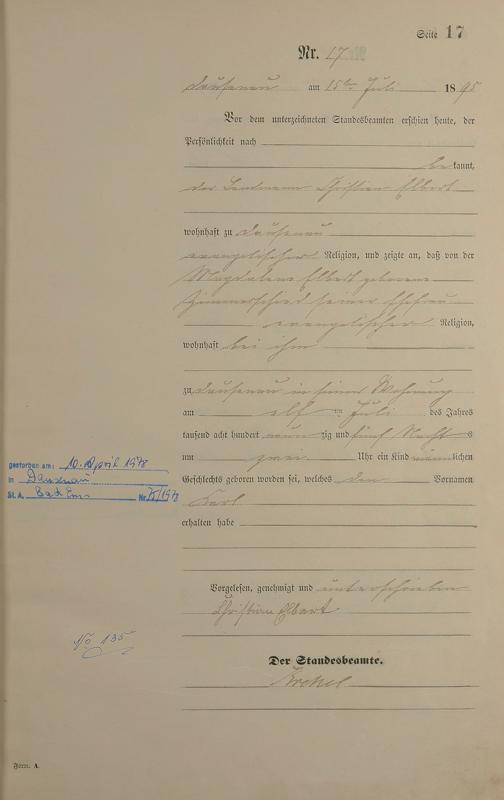 Seite 17
Nr. 17
Dausenau am 15ten Juli 1895
Vor dem unterzeichneten Standesbeamten erschien heute, der
Persönlichkeit nach
bekannt,
der Landmann Christian Elbert
wohnhaft zu Dausenau
evangelischer Religion, und zeigte an, daß von der
Magdalena Elbert geborene
Zimmerschied seiner Ehefrau
evangelischer Religion,
wohnhaft bei ihm
zu Dausenau in seiner Wohnung
am elf ten Juli des Jahres
tausend acht hundert neun zig und fünf Nachts
um zwei Uhr ein Kind männlichen
Geschlechts geboren worden sei, welches den Vornamen
Karl
erhalten habe
gestorben am: 10. April 1978
in Dausenau
St. A. Bad Ems Nr. /1978
Vorgelesen, genehmigt und unterschrieben
Christian Elbert
No 135
Der Standesbeamte.
Form. A.